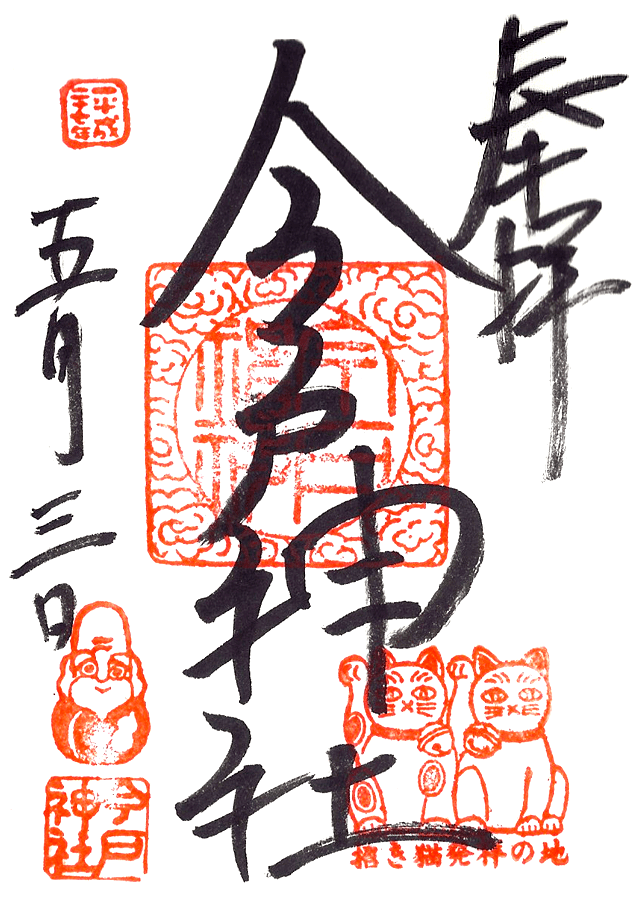 奉拝
今戸神社
平成
二十七年
五月三日
今戸
神社
招き猫発祥の地